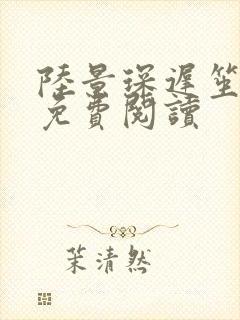 陸景琛遲笙
免費閱讀
茉清然